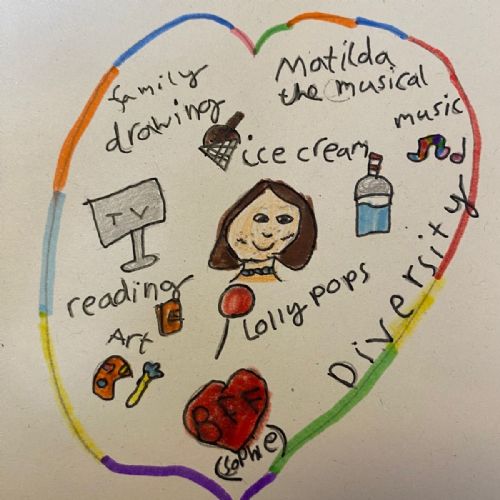 family
drawing
Matilda
the musical
music
ice cream
TV
reading
Lollypops
Diversity
Art
BFF
(Sophie)